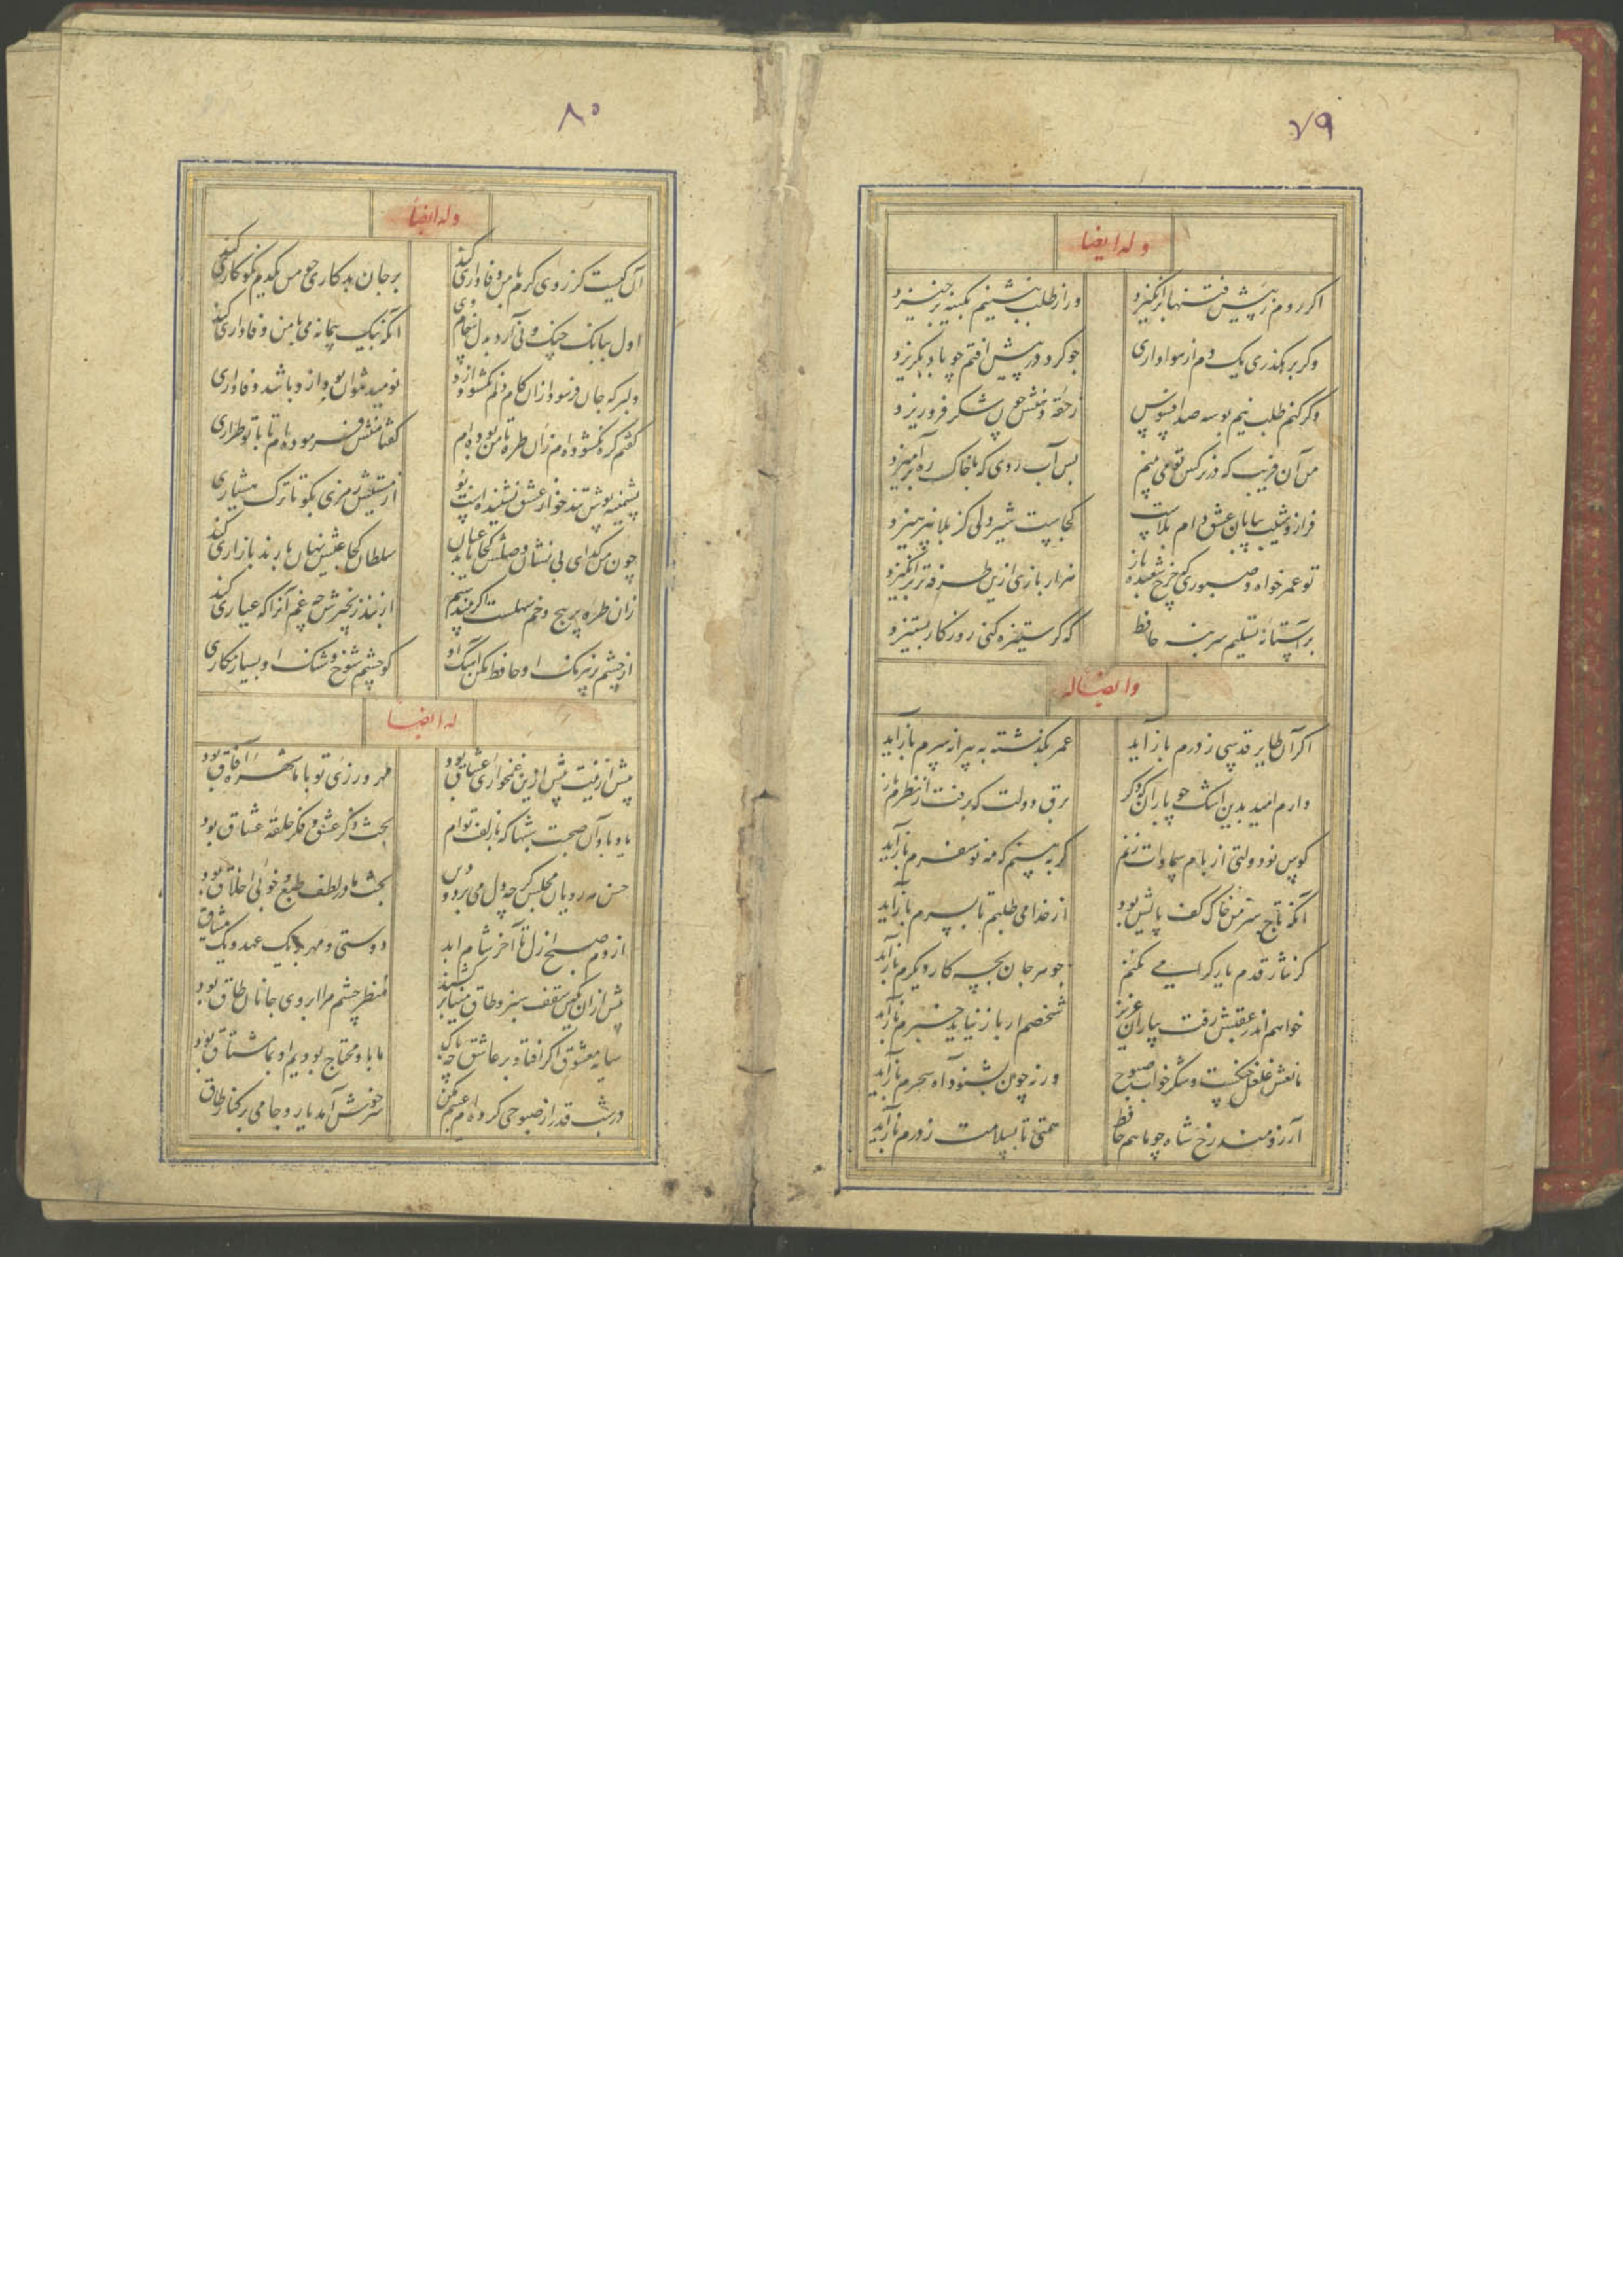 ۷۹
وله ایضا
اکر روم ز پیش فتنها برانکیزد
ور از طلب بنشینم بکینه برخیزد
وکر برهکذری یک دم از هواداری
چو کرد در پیش افتم چو باد بکریزد
وکر کنم طلب نیم بوسه صد افسوس
ز حقه دهنش چون شکر فرو ریزد
من آن فریب که در نرکس تو می بینم
بس آب روی که با خاک ره برآمیزد
فراز و شیب بیابان عشق دام بلاست
کجاست شیر دلی کز بلا نپرهیزد
تو عمر خواه و صبوری که چرخ شعبده باز
هزار بازی ازین طرفه تر برانکیزد
بر آستانه تسلیم سر بنه حافظ
که کر ستیزه کنی روزکار بستیزد
وایضاله
اکر آن طایر قدسی ز درم باز آید
عمر بکذشته به پیرانه سرم باز آید
دارم امید بدین اشک چو باران که دکر
برق دولت که برفت از نظرم باز
کوس نو دولتی از بام سماوات زنم
کر به بینم که مه نو سفرم باز آید
آنکه تاج سر من خاک کف پایش بود
از خدا می طلبم تا بسرم باز آید
کر نثار قدم یار کرامی نکنم
جوهر جان بچه کار دکرم باز آید
خواهم اندر عقبش رفت بیاران عزیز
شخصم ار باز نیاید خبرم باز آید
مانعش غلغل چنکست و شکر خواب صبوح
ورنه چون بشنود آه سحرم باز آید
آرزومند رخ شاه چو ماهم حافظ
همتی تا بسلامت ز درم باز آید
۸۰
وله ایضا
آن کیست کز روی کرم با من وفاداری کند
بر جان بدکاری چو من یکدم نکوکاری کند
اول ببانک چنک و نی آرد بدل پیغام وی
آنکه بیک پیمانه می با من وفاداری کند
دلبر که جان فرسود ازان کام دلم نکشود ازو
نومید نتوان بود ازو باشد وفاداری
کفتم کره نکشوده ام زان طره تا من بوده ام
کفتا منش فرموده ام تا با تو طراری
پشمینه پوش تند خو از عشق نشنیده است بو
از مستیش رمزی بکو تا ترک هشیاری
چون من کدای بی نشان وصلش کجا یابد عیان
سلطان کجا عیش نهان با رند بازاری کند
زان طره پر پیچ و خم سهلست اکر بینم ستم
از بند زنجیرش چه غم آنرا که عیاری کند
از چشم پر نیرنک او حافظ مکن آهنک او
کو چشم شوخ و شنک او بسیار مکاری
له ایضا
پیش ازینت بیش ازین غمخواری عشاق بود
مهر ورزی تو با ما شهره آفاق بود
یاد باد آن صحبت شبها که با زلف توام
بحث و ذکر عشق و فکر حلقه عشاق بود
حسن مه رویان مجلس کرچه دل می برد و دین
بحث ما در لطف طبع و خوبی اخلاق بود
از دم صبح ازل تا آخر شام ابد
دوستی و مهر بر یک عهد و یک میثاق
پیش ازان کین سقف سبز و طاق مینا برکشند
منظر چشم مرا ابروی جانان طاق بود
سایه معشوق اکر افتاد بر عاشق چه باک
ما باو محتاج بودیم او بما مشتاق بود
در شب قدر ار صبوحی کرده ام عیبم مکن
سر خوش آمد یار و جامی بر کنار طاق